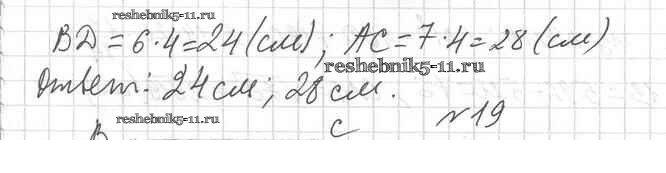 reshebnik5-11.ru
BD = 6·4 = 24 (см); AC = 7·4 = 28 (см)
reshebnik5-11.ru
Ответ: 24 см; 28 см.
reshebnik5-11.ru
B C №19